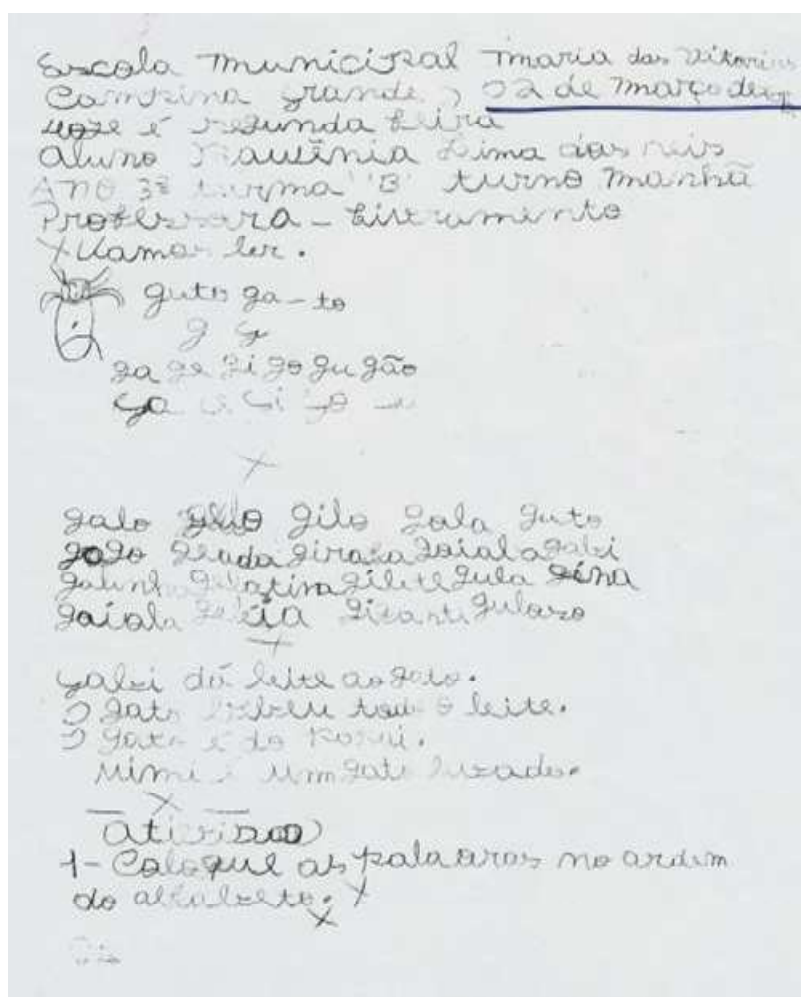 Escola Municipal Maria das Vitorias
Campina Grande, 02 de Março de
Hoje é segunda feira
Aluno Lima dos reis
Ano 3º turma "B" turno manhã
Professora - Livramento
Vamos ler.
guto ga-to
g G
ga ge gi go gu gão
Ga Ge Gi Go Gu
galo gelo gilo gola guto
gogo geada girafa goiaba gabi
galinha gelatina gilete gula gina
gaiola geleia gigante gulozo
Gabi dá leite ao gato.
O gato bebeu todo o leite.
O gato é do
Mimi é um gato
atividade
1- Coloque as palavras no ordem
do alfabeto.